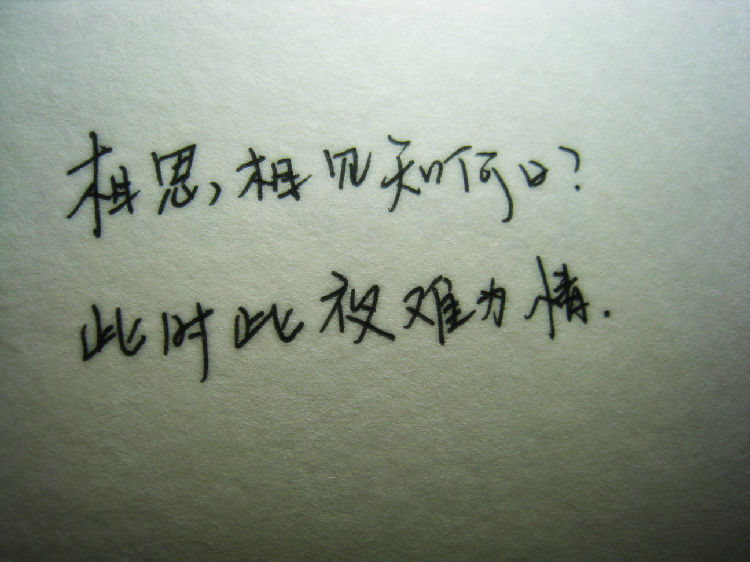 相思,相见知何日?
此时此夜难为情.